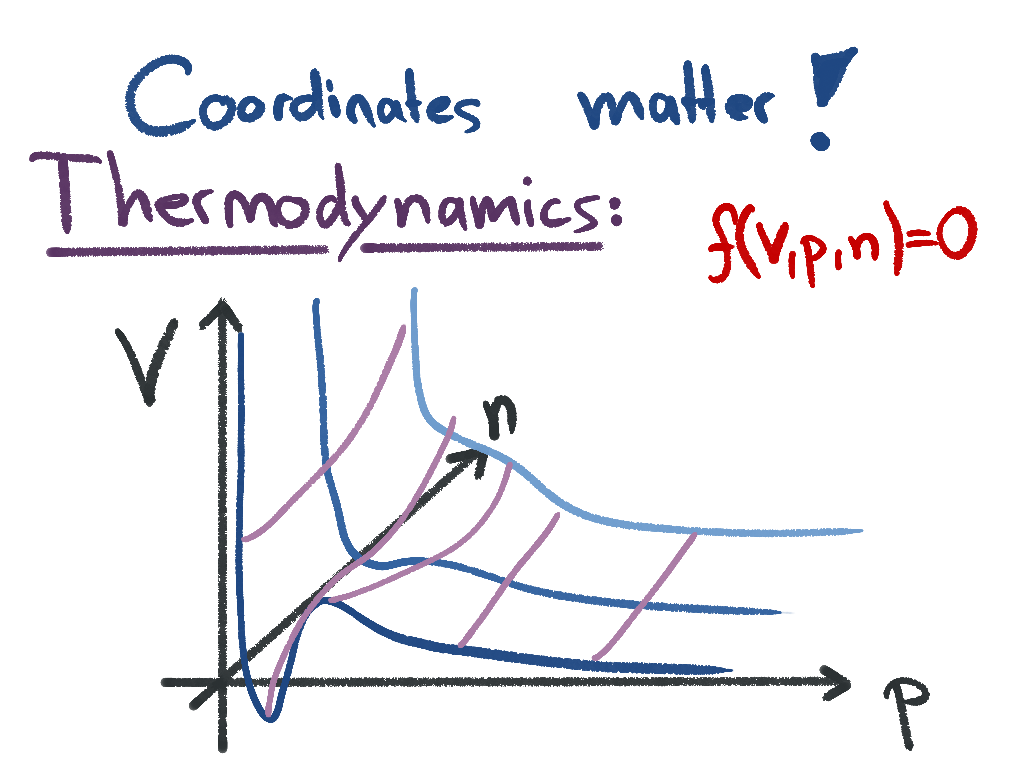 Coordinates matter!
Thermodynamics:
f(V,p,n)=0
V
n
p